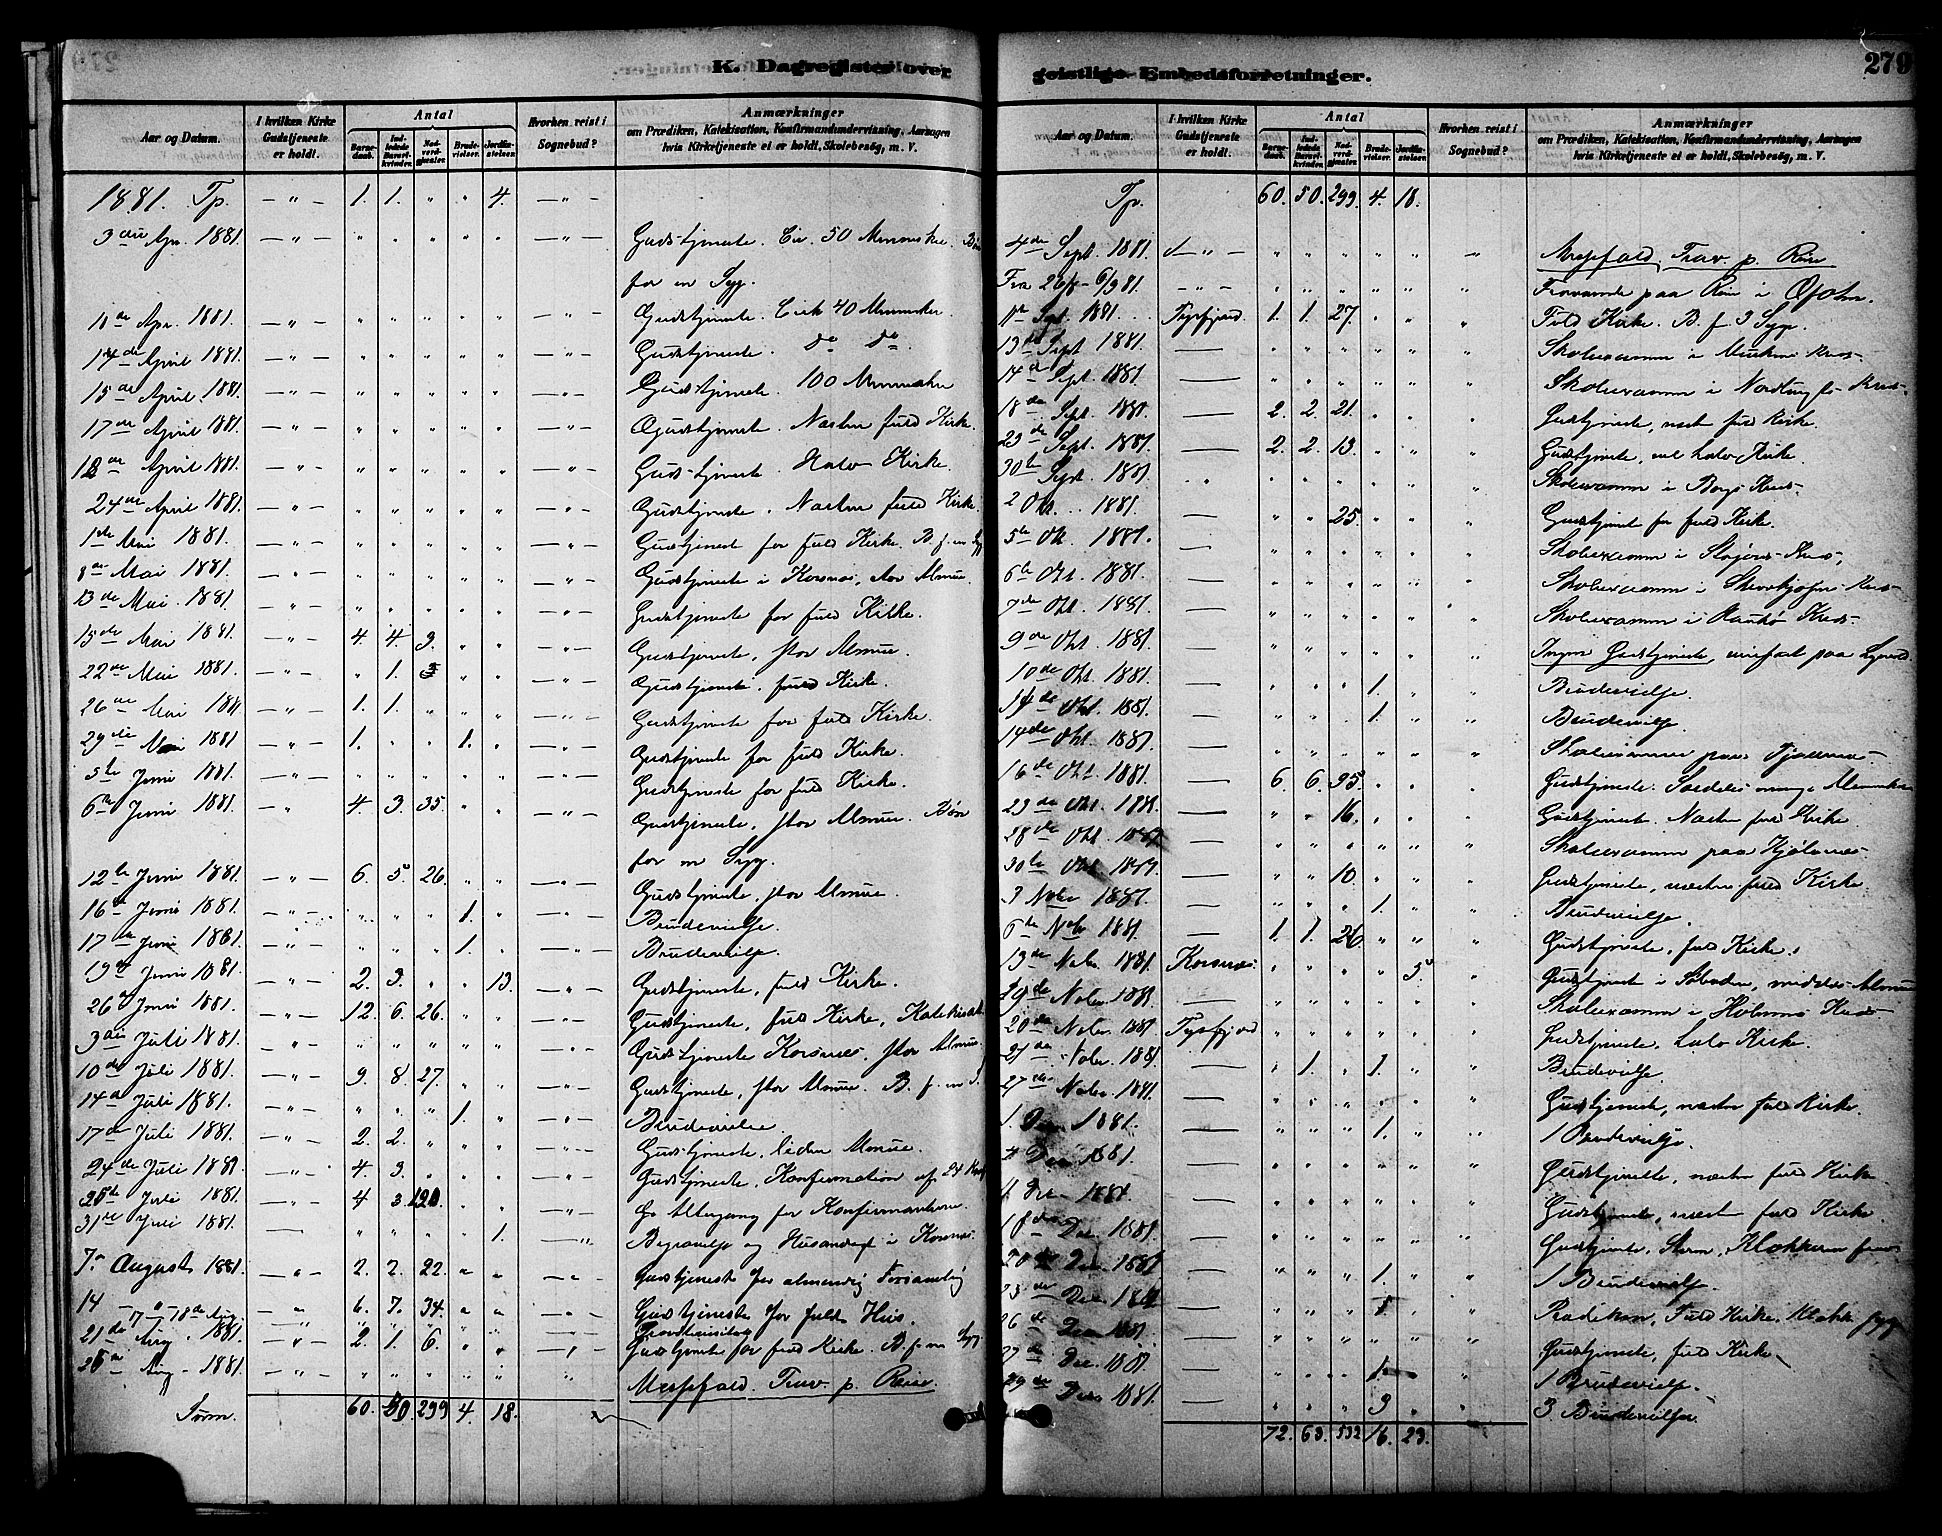 K. Dagregister over geistlige Embedsforretninger.
279
Aar og Datum. | I hvilken Kirke Gudstjeneste er holdt. | Antal | Barnedaab. | Indledede Barselkvinder. | Nadverdgjæster. | Brudevielser. | Jordfæstelser. | Hvorhen reist i Sognebud? | Anmærkninger om Prædiken, Katekisation, Konfirmandundervisning, Aarsagen hvis Kirketjeneste ei er holdt, Skolebesøg, m. V.
1881. Tp. — " — 1. 1. " " 4. — " —
3die Apr. 1881. — " — " " " " " — " — Gudstjeneste. Cir. 50 Mennesker. Bøn
for en Syg.
10de Apr. 1881. — " — " " " " " — " — Gudstjeneste. Cirk 40 Mennesker
14de April 1881. — " — " " " " " — " — Gudstjeneste. do do.
15de April 1881. — " — " " " " " — " — Gudstjeneste. 100 Mennesker
17de April 1881. — " — " " " " " — " — Gudstjeneste. Næsten fuld Kirke.
18de April 1881. — " — " " " " " — " — Gudstjeneste. Halv Kirke.
24de April 1881. — " — " " " " " — " — Gudstjeneste. Næsten fuld Kirke.
1ste Mai 1881. — " — " " " " " — " — Gudstjeneste for fuld Kirke. B. f. en Syg
8de Mai 1881. — " — " " " " " — " — Gudstjeneste i Korsnæs, stor Almue.
13de Mai 1881. — " — " " " " " — " — Gudstjeneste for fuld Kirke.
15de Mai 1881. — " — 4. 4. 9. " " — " — Gudstjeneste, stor Almue.
22de Mai 1881. — " — " 1. " " — " — Gudstjeneste, fuld Kirke.
26de Mai 1881 — " — 1. 1. " " " — " — Gudstjeneste for fuld Kirke.
29de Mai 1881 — " — 1. " " 1. " — " — Gudstjeneste for fuld Kirke.
5te Juni 1881. — " — " " " " " — " — Gudstjeneste for fuld Kirke.
6te Juni 1881. — " 4. 3. 35. " " — " — Gudstjeneste, stor Almue. Bøn
for en Syg.
12te Juni 1881. — " — 6. 5. 26. " " — " — Gudstjeneste, stor Almue.
16de Juni 1881. — " — " " " 1. " — " — Brudevielse.
17de Juni 1881 — " — " " " 1. " — " — Brudevielse.
19de Juni 1881 — " — 2. 3. " " 13. — " — Gudstjeneste, fuld Kirke.
26de Juni 1881. — " — 12. 6. 26. " " — " — Gudstjeneste, fuld Kirke, Katekisat.
3die Juli 1881. — " — " " " " " — " — Gudstjeneste Korsnæs, stor Almue.
10de Juli 1881. — " — 9. 8. 27. " " — " — Gudstjeneste, stor Almue. B. f. en S.
14de Juli 1881. — " — " " " 1. " — " — Brudevielse.
17de Juli 1881. — " — 2. 2. " " " — " — Gudstjeneste, liden Almue.
24de Juli 1881. — " — 4. 3. " " " — " — Gudstjeneste. Konfirmation af 24
25de Juli 1881. — " — 4 3. 120. " " — " — Altergang for Konfirmanderne.
31te Juli 1881. — " " " " 1. — " — Begravelse og Husandagt i Korsnæs.
7de August 1881. — " — 2. 2. 22. " " — " — Gudstjeneste for almindelig Forsamling
14 — 6. 7. 34. " " — " — Gudstjeneste for fuldt Hus.
— 17de — 18de Aug.
21de Aug. 1881. — " — 2. 1. 6. " " — " — Gudstjeneste for fuld Kirke. B. f. en Syg.
28de Aug. 1881. — " — " " " " " " Messefald. Frav. p. Reise.
Sum. 60. 50. 299 4. 18.
Tp. 60. 50. 299. 4. 18.
4de Sept. 1881. — " — " " " " " " Messefald. Frav. p. Reise
Fra 26/8 - 6/9 81. — " — " " " " " " Fraværende paa Reise i Ofoten.
11te Sept. 1881. Tysfjord. 1. 1. 27. " " " Fuld Kirke. B. f. 3 Syge.
13de Sept 1881. — " " " " " " Skoleexamen i
14de Sept. 1881. — " " " " " " Skoleexamen i
18de Sept. 1881. — 2. 2. 21. " " " Gudstjeneste, næst fuld Kirke.
23de Sept. 1881. — 2. 2. 13. " " " Gudstjeneste, vel halv Kirke.
30te Sept. 1881 " " " " " " Skoleexamen i Borgs Kreds.
2 Okt. 1881. " " 25. " " " Gudstjenest for fuld Kirke.
5te Okt. 1881. — " " " " " " Skoleexamen i
6te Okt. 1881. — " " " " " " Skoleexamen i
7de Okt. 1881. — " " " " " " Skoleexamen i
9de Okt. 1881. — " " " " " " Ingen Gudstjeneste,
10de Okt. 1881. — " " " 1. " " Brudevielse.
14de Okt. 1881. — " " " 1. " " Brudevielse.
14de Okt. 1881. — " " " " " " Skoleexamen paa
16de Okt. 1881. — 6. 6. 95. " " " Gudstjeneste. Særdeles mange Mennesker
23de Okt. 1881. — " " 16. " " " Gudstjeneste. Næsten fuld Kirke
28de Okt. 1881 — " " " " " " Skoleexamen paa Kjølnæs.
30te Okt. 1881. — " " 10. " " " Gudstjeneste, næsten fuld Kirke.
3 Novbr 1881. — " " " 1. " " Brudevielse.
6te Novbr 1881. — 1. 1. 26. " " " Gudstjeneste, fuld Kirke.
13de Novbr. 1881. Korsnæs. " " " " 5. " Gudstjeneste i middels Almue
19de Novbr 1881. — " " " " " " Skoleexamen i Holmnæs Kreds
20de Novbr. 1881. Tysfjord " " " " " " Gudstjeneste. Halv Kirke.
21de Novbr. 1881. — " 1. " 1. " " Brudevielse.
27de Novbr 1881. — " " " " " " Gudstjeneste, næsten fuld Kirke.
1. Dec. 1881. — " " " 1. " " 1 Brudevielse.
4 Dec. 1881. — " " " " " " Gudstjeneste, næsten fuld Kirke
11 Dec. 1881 — " " " " " " Gudstjeneste, næst fuld Kirke.
18de Dec. 1881. — " " " " " " Gudstjeneste. Storm.
20de Dec. 1881 — " " " 1. " " 1 Brudevielse
25de Dec. 1881 — " " " " " " Prædiken, Fuld Kirke. Klokk. syg
26de Dec. 1881. — " " " " " " Gudstjeneste, fuld Kirke
27de Dec. 1881. — " " " 1. " " 1 Brudevielse.
29de Dec. 1881. — " " " 3 " " 3 Brudevielser.
72. 63. 532 16. 23.